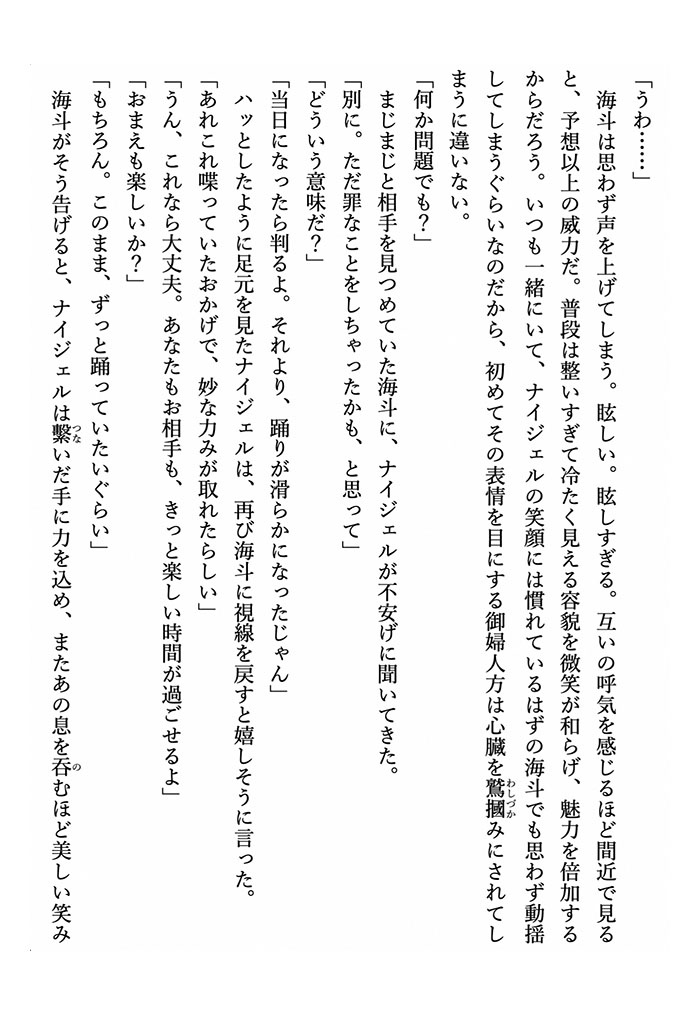 「うわ……」
　海斗は思わず声を上げてしまう。眩しい。眩しすぎる。互いの呼気を感じるほど間近で見る
と、予想以上の威力だ。普段は整いすぎて冷たく見える容貌を微笑が和らげ、魅力を倍加する
からだろう。いつも一緒にいて、ナイジェルの笑顔には慣れているはずの海斗でも思わず動揺
してしまうぐらいなのだから、初めてその表情を目にする御婦人方は心臓を鷲摑みにされてし
まうに違いない。
「何か問題でも？」
　まじまじと相手を見つめていた海斗に、ナイジェルが不安げに聞いてきた。
「別に。ただ罪なことをしちゃったかも、と思って」
「どういう意味だ？」
「当日になったら判るよ。それより、踊りが滑らかになったじゃん」
　ハッとしたように足元を見たナイジェルは、再び海斗に視線を戻すと嬉しそうに言った。
「あれこれ喋っていたおかげで、妙な力みが取れたらしい」
「うん、これなら大丈夫。あなたもお相手も、きっと楽しい時間が過ごせるよ」
「おまえも楽しいか？」
「もちろん。このまま、ずっと踊っていたいぐらい」
　海斗がそう告げると、ナイジェルは繫いだ手に力を込め、またあの息を吞むほど美しい笑み